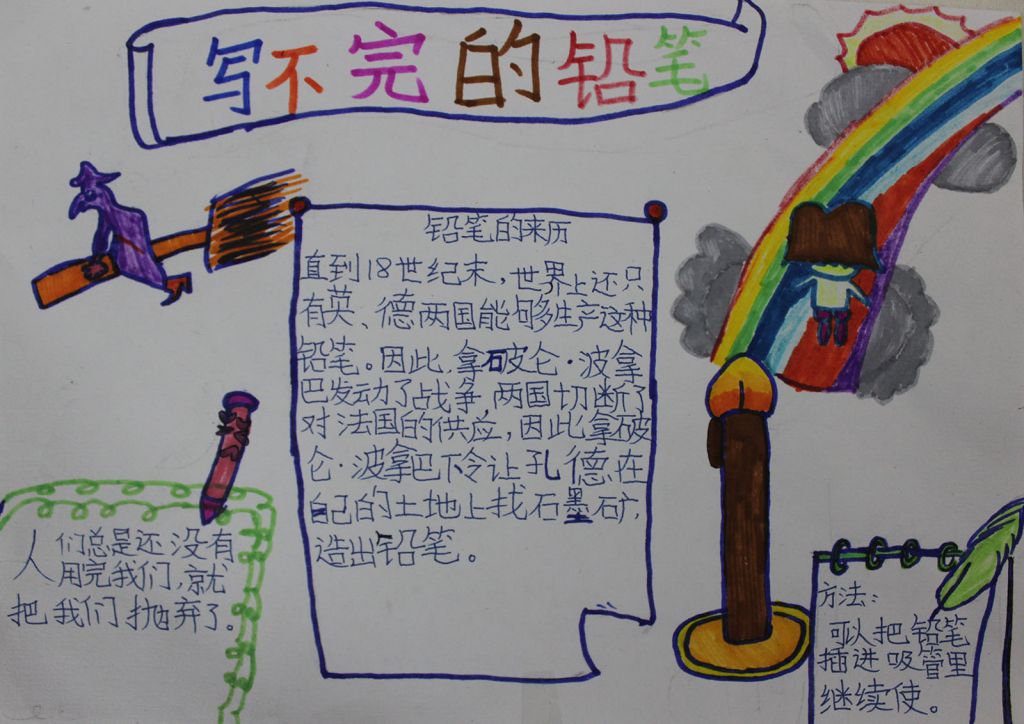 写不完的铅笔
铅笔的来历
直到18世纪末，世界上还只
有英、德两国能够生产这种
铅笔。因此，拿破仑·波拿
巴发动了战争，两国切断了
对法国的供应，因此拿破
仑·波拿巴下令让孔德在
自己的土地上找石墨矿，
造出铅笔。
人们总是还没有
用完我们，就
把我们抛弃了。
方法：
可以把铅笔
插进吸管里
继续使。